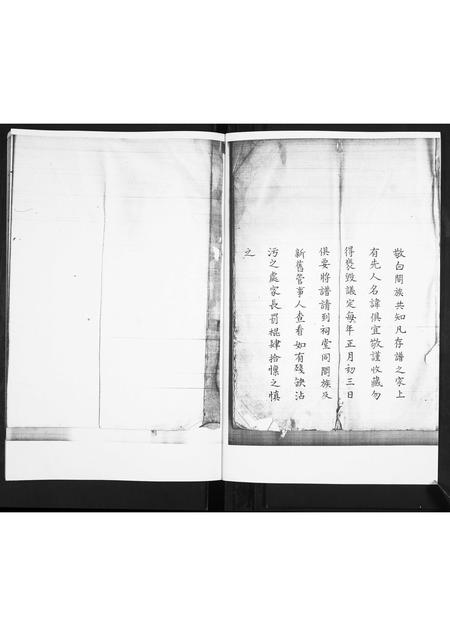 敬白閤族共知凡存譜之家上
有先人名諱俱宜敬謹收藏勿
得褻毀議定每年正月初三日
俱要將譜請到祠堂同閤族及
新舊管事人查看如有殘缺沾
污之處家長罰棍肆拾慄之慎
之